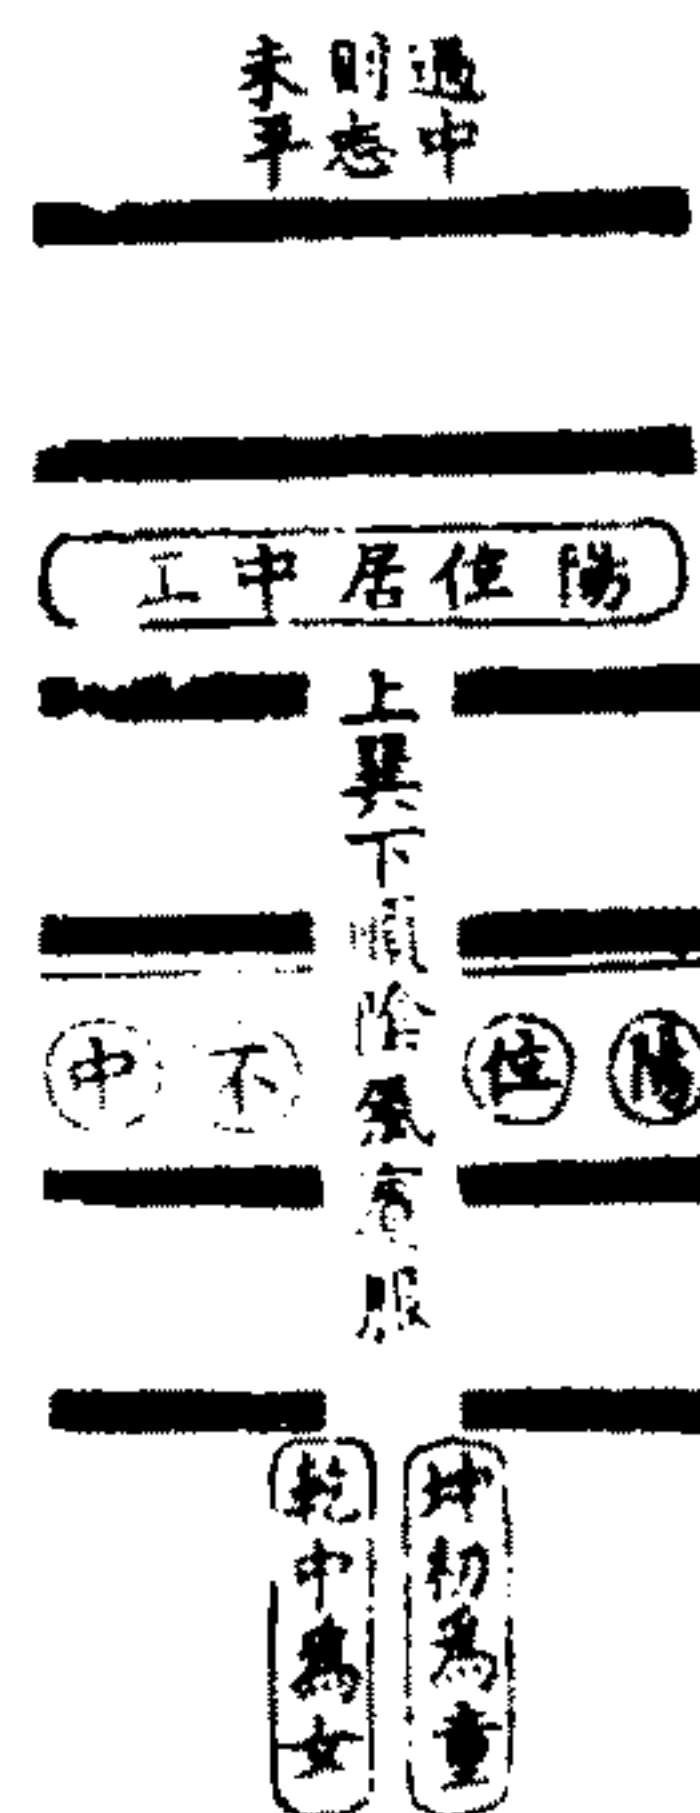 過中
則志
未平
陽位居中
上巽下陰氣服
陽位不中
坤初為童
乾中為女